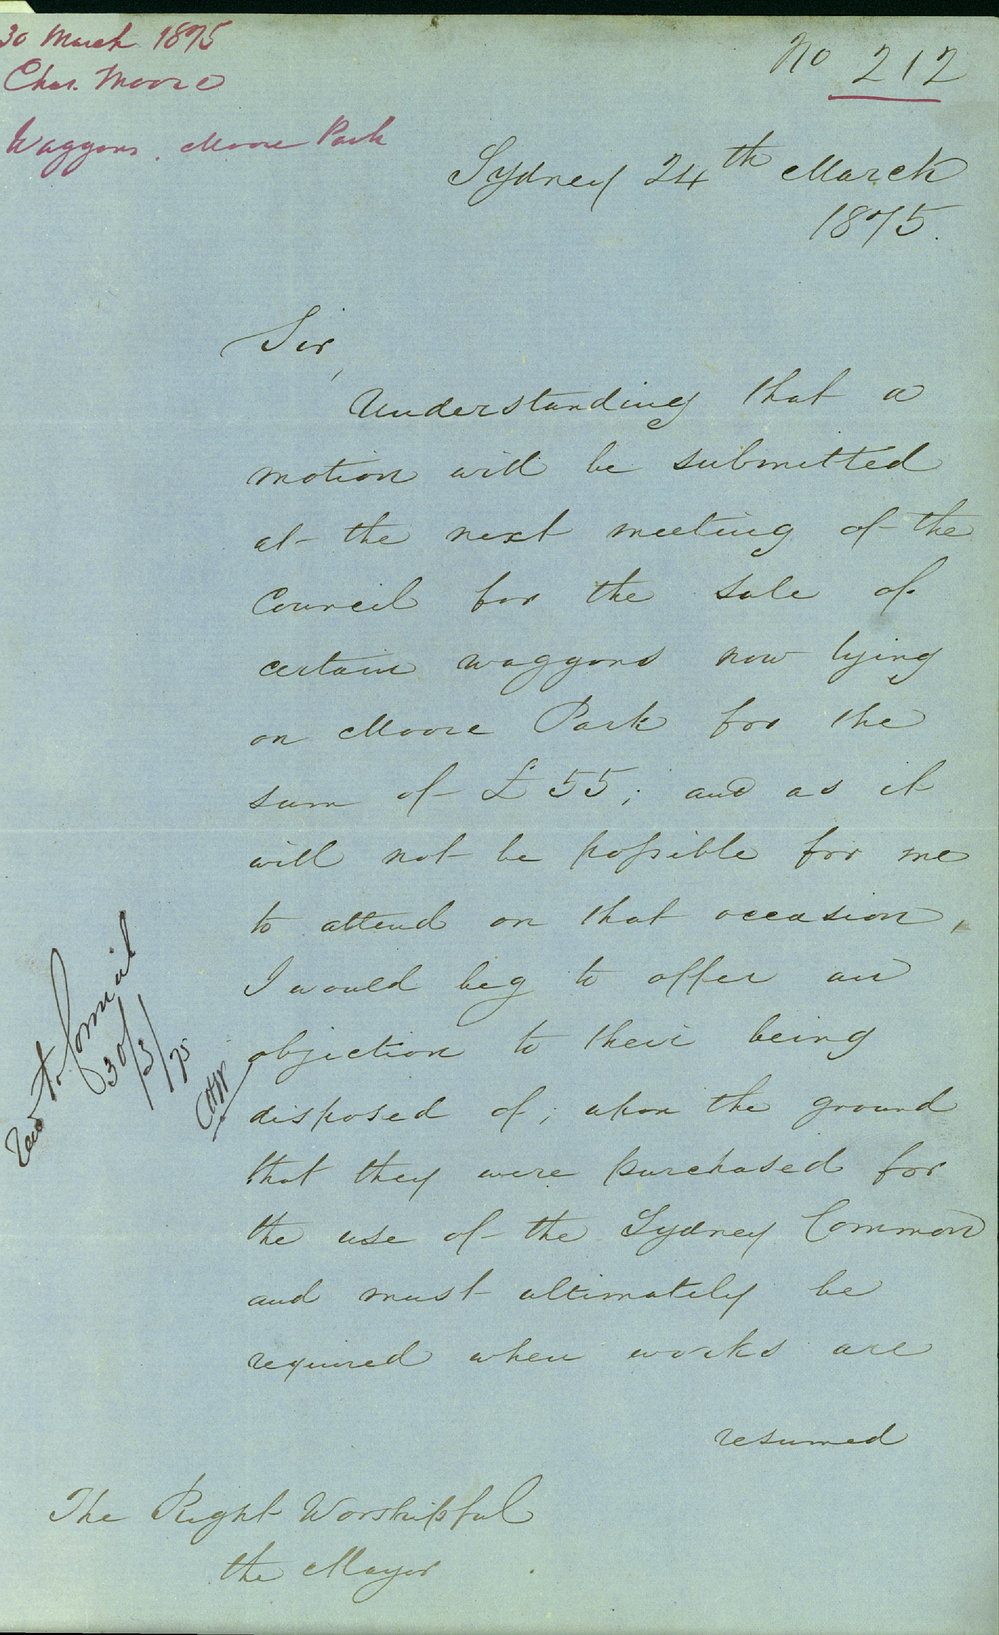 30 March 1875
Chas. Moore
Waggons. Moore Park
No 212
Sydney 24th March
1875.
Sir,
Understanding that a
motion will be submitted
at the next meeting of the
Council for the sale of
certain waggons now lying
on Moore Park for the
sum of £55; and as it
will not be possible for me
to attend on that occasion,
I would beg to offer an
objection to their being
disposed of; upon the ground
that they were purchased for
the use of the Sydney Common
and must ultimately be
required when works are
resumed
The Right Worshipful
the Mayor
to Council
30/3/75